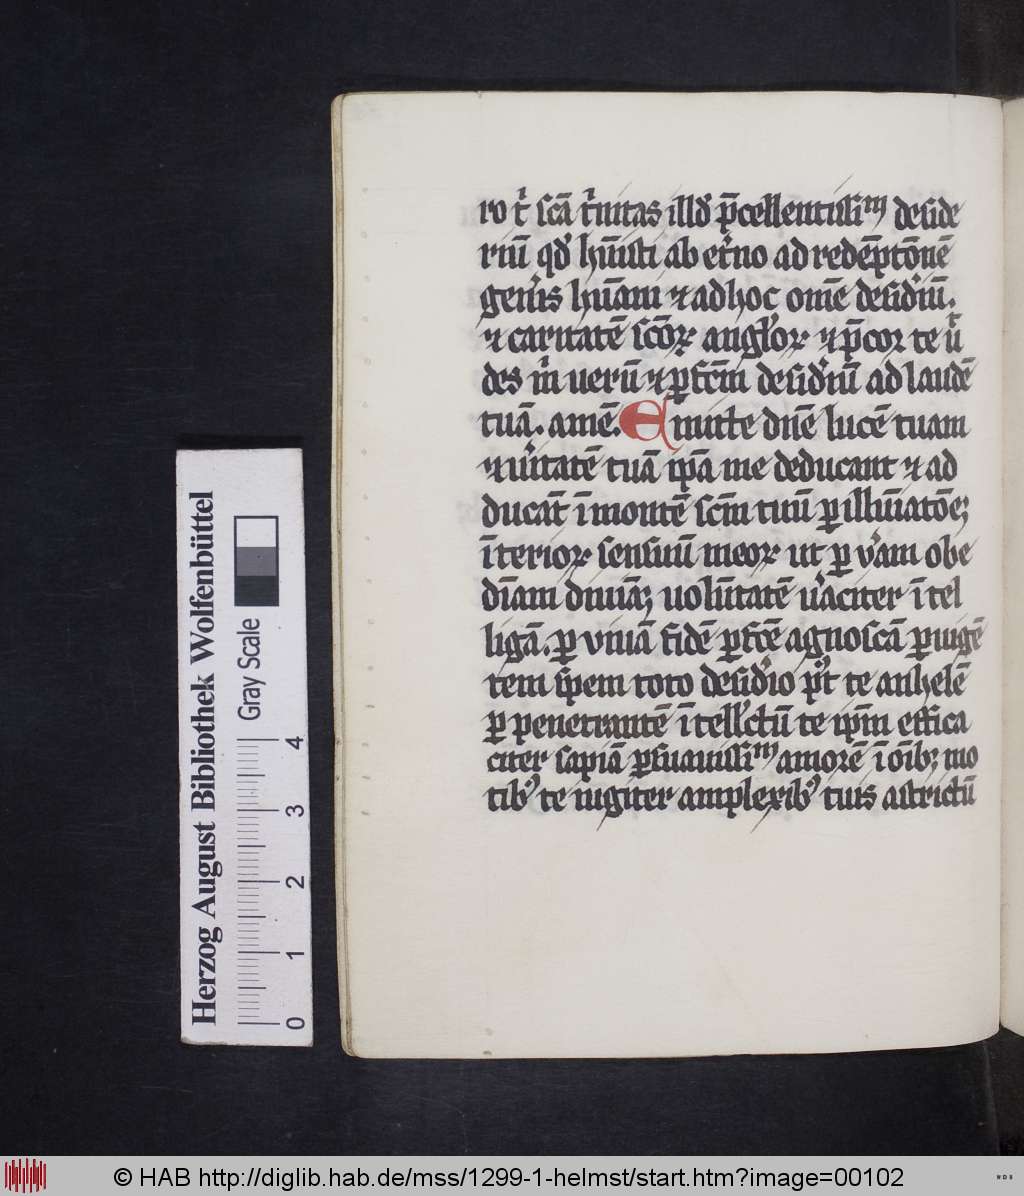 ro t sca̅ tinitas illd p̅cellentissim deside
riu̅ qd hu̅isti ab et'no ad rede̅pto̅ne̅
gen'is hu̅ani ⁊ ad hoc om̅e desid'iu̅.
⁊ caritate̅ sc̅oꝝ angl'oꝝ ⁊ p̅cor te ut
des m' ueru̅ ⁊ ꝑfc̅m desid'iu̅ ad laude̅
tua̅. ame̅. Emitte dn̅e luce̅ tuam
⁊ u'itate̅ tua̅ ip̅a me deducant ⁊ ad
duca̅t i̅ monte̅ sc̅m tuu̅ ꝑ illu̅iato̅eꝫ
i̅terioꝝ sensuu̅ meoꝝ ut ꝑ v'am obe
di̅am diuinaꝫ uolu̅tate̅ u'aciter i̅tel
liga̅. ꝑ viua̅ fide̅ ꝑfc̅e agnosca̅ ꝑuige̅
tem spem toto desid'io p't te anhele̅
ꝑ penetrante̅ i̅tell'ctu̅ te ip̅m effica
citer sapia̅ ꝑ suauissim amore̅ i̅ o̅ibꝫ mo
tibꝰ te iugiter amplexibꝰ tuis astrictu̅
Herzog August Bibliothek Wolfenbüttel
Gray Scale
0 1 2 3 4
© HAB http://diglib.hab.de/mss/1299-1-helmst/start.htm?image=00102